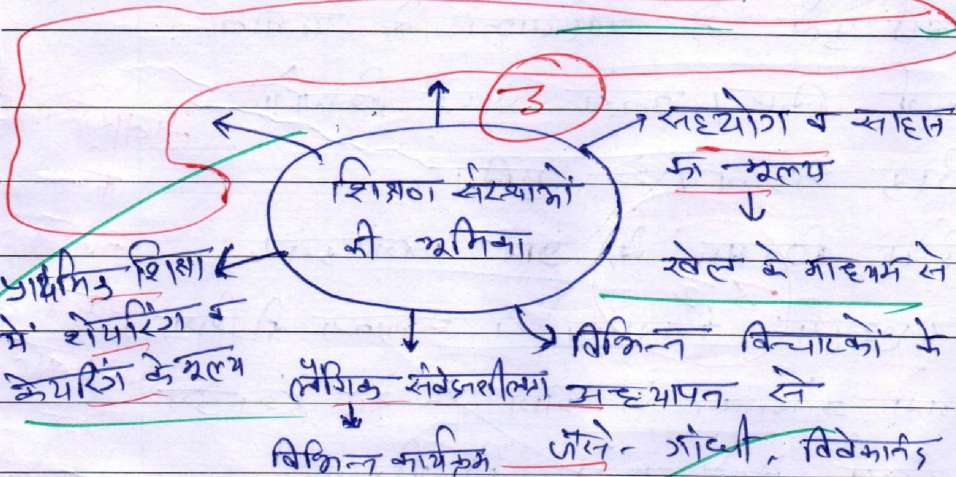 3
शिक्षण संस्थाओं
की भूमिका
सहयोग व साहस
का मूल्य
↓
खेल के माध्यम से
प्राथमिक शिक्षा
में शेयरिंग व
केयरिंग के मूल्य
लैंगिक संवेदनशीलता
↓
विभिन्न कार्यक्रम
विभिन्न विचारकों के
अध्यापन से
जैसे- गांधी, विवेकानंद